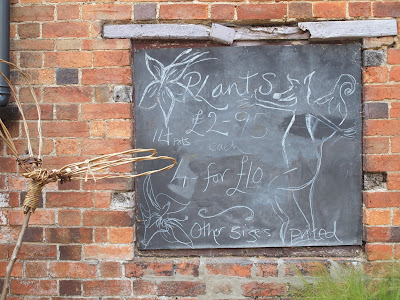 Plants.
£2-95
1Lt pots each
4-for £10
Other sizes priced